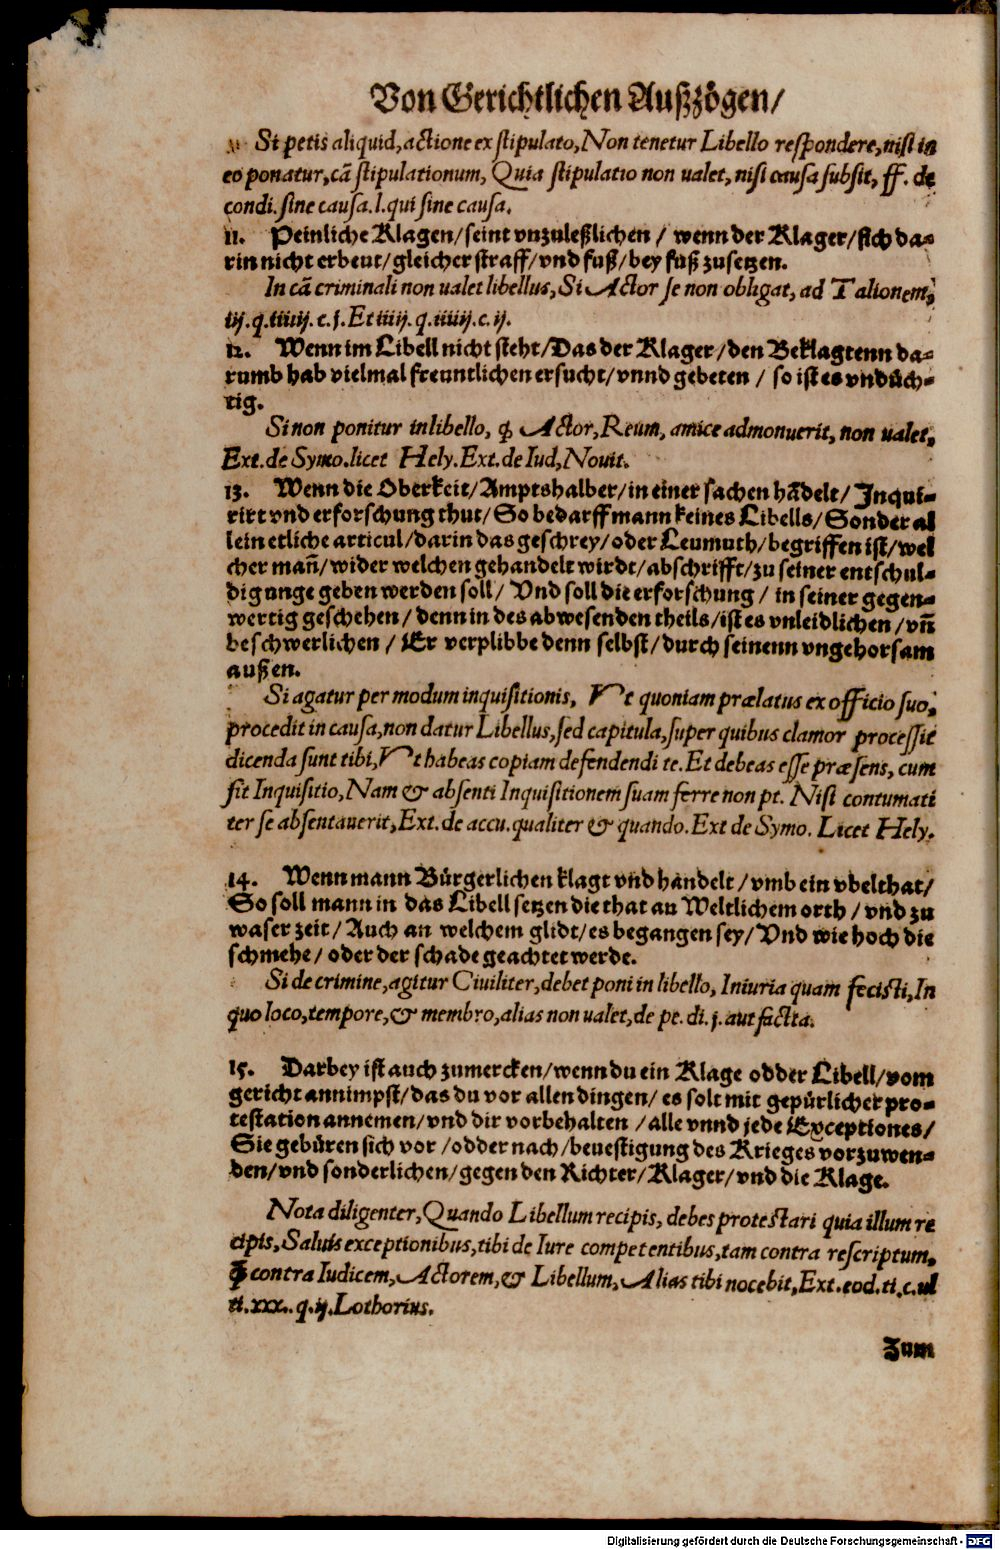 Von Gerichtlichen Außzögen/
Si petis aliquid, actione ex stipulato, Non tenetur Libello respondere, nisi in
eo ponatur, cā stipulationum, Quia stipulatio non ualet, nisi causa subsit, ff. de
condi. sine causa. l. qui sine causa.
11. Peinliche Klagen/seint vnzuleßlichen / wenn der Klager/sich da⸗
rin nicht erbeut/gleicher straff/vnd fuß/bey fuß zusetzen.
In cā criminali non ualet libellus, Si Actor se non obligat, ad Talionem,
iij. q. iiiij. c. j. Et iiij. q. iiiij. c. ij.
12. Wenn im Libell nicht steht/Das der Klager/den Beklagtenn da⸗
rumb hab vielmal freuntlichen ersucht/vnnd gebeten / so ist es vndüch⸗
tig.
Si non ponitur in libello, ꝙ Actor, Reum, amice admonuerit, non ualet,
Ext. de Symo. licet Hely. Ext. de Iud, Nouit.
13. Wenn die Oberkeit/Amptshalber/in einer sachen hādelt/ Inqui⸗
rirt vnd erforschung thut/So bedarff mann keines Libells/Sonder al
lein etliche articul/darin das geschrey/oder Leumuth/begriffen ist/wel
cher mañ/wider welchen gehandelt wirdt/abschrifft/zu seiner entschul⸗
digunge geben werden soll/ Vnd soll die erforschung / in seiner gegen⸗
wertig geschehen/denn in des abwesenden theils/ist es vnleidlichen/vñ
beschwerlichen / Er verplibbe denn selbst/durch seinenn vngehorsam
aussen.
Si agatur per modum inquisitionis, Vt quoniam prælatus ex officio suo,
procedit in causa, non datur Libellus, sed capitula, super quibus clamor processit
dicenda sunt tibi, Vt habeas copiam defendendi te. Et debeas esse præsens, cum
fit Inquisitio, Nam & absenti Inquisitionem suam ferre non pt. Nisi contumati
ter se absentauerit, Ext. de accu. qualiter & quando. Ext de Symo. Licet Hely.
14. Wenn mann Bürgerlichen klagt vnd handelt /vmb ein vbelthat/
So soll mann in das Libell setzen die that an Weltlichem orth / vnd zu
waser zeit/ Auch an welchem glidt/es begangen sey/Vnd wie hoch die
schmehe/ oder der schade geachtet werde.
Si de crimine, agitur Ciuiliter, debet poni in libello, Iniuria quam fecisti, In
quo loco, tempore, & membro, alias non ualet, de pe. di. j. aut facta.
15. Darbey ist auch zumercken/wenn du ein Klage odder Libell/vom
gericht annimpst/das du vor allen dingen/ es solt mit gepürlicher pro⸗
testation annemen/vnd dir vorbehalten /alle vnnd jede Exceptiones/
Sie gebüren sich vor /odder nach/beuestigung des Krieges vorzuwen⸗
den/vnd sonderlichen/gegen den Richter/Klager/vnd die Klage.
Nota diligenter, Quando Libellum recipis, debes protestari quia illum re
cipis, Saluis exceptionibus, tibi de Iure competentibus, tam contra rescriptum,
ꝙ contra Iudicem, Actorem, & Libellum, Alias tibi nocebit, Ext. eod. ti. c. ul
ti. xxx. q. ij. Lothorius.
Zum
Digitalisierung gefördert durch die Deutsche Forschungsgemeinschaft - DFG